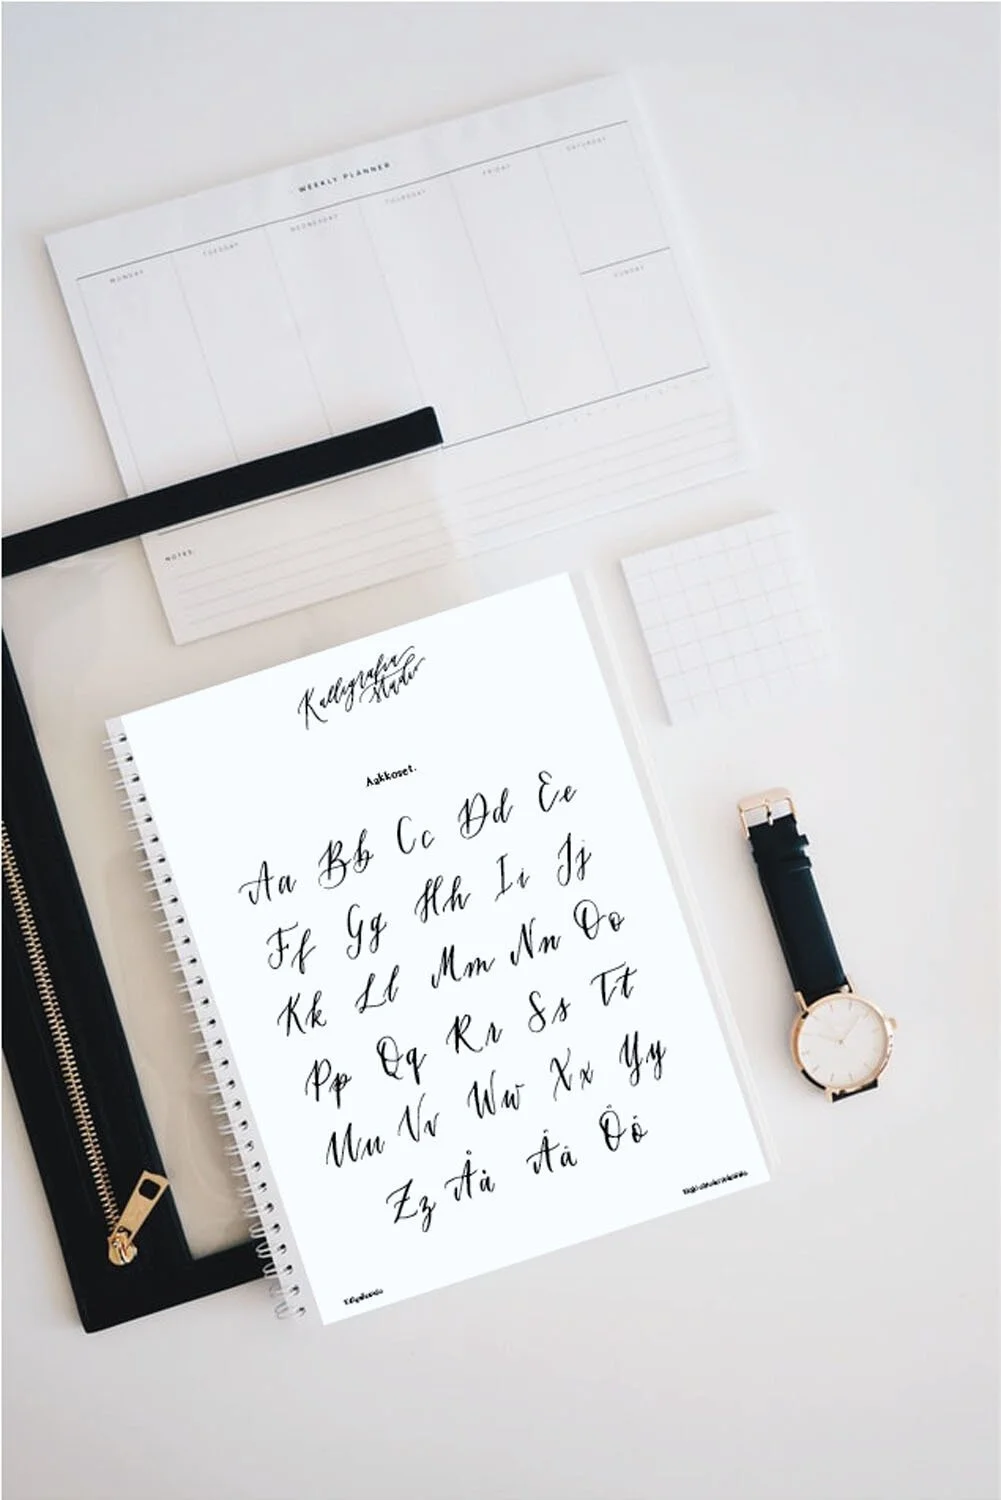 WEEKLY PLANNER
MONDAY TUESDAY WEDNESDAY THURSDAY FRIDAY SATURDAY
SUNDAY
NOTES:
Kalligrafia
studio
Aakkoset.
Aa Bb Cc Dd Ee
Ff Gg Hh Ii Jj
Kk Ll Mm Nn Oo
Pp Qq Rr Ss Tt
Uu Vv Ww Xx Yy
Zz Åå Ää Öö